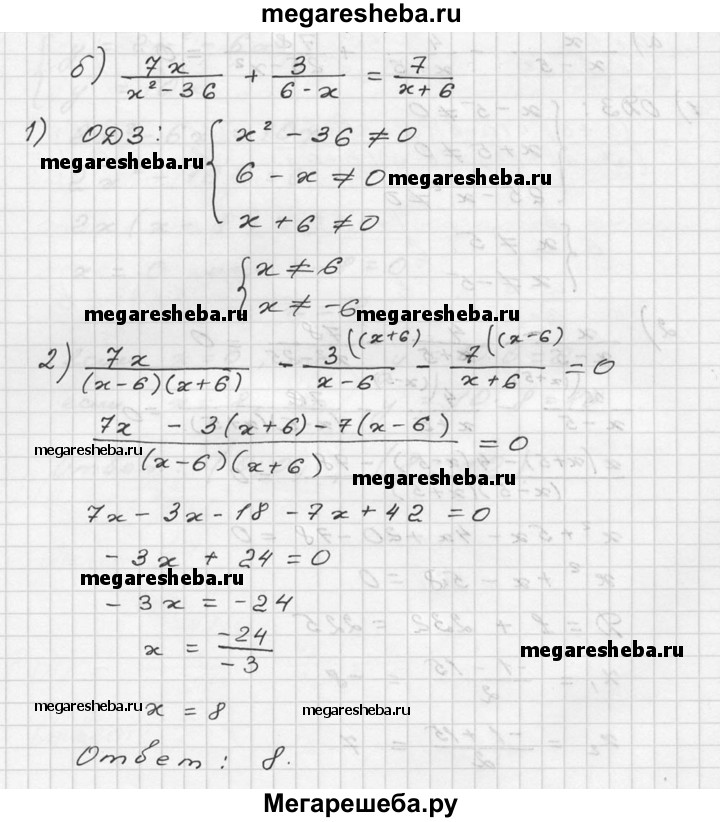 megaresheba.ru
б) 7x/(x² - 36) + 3/(6 - x) = 7/(x + 6)
1) ОДЗ: { x² - 36 ≠ 0
megaresheba.ru
6 - x ≠ 0 megaresheba.ru
x + 6 ≠ 0
{ x ≠ 6
megaresheba.ru x ≠ -6 megaresheba.ru
2) 7x/((x-6)(x+6)) - 3((x+6)/(x-6) - 7((x-6)/(x+6) = 0
(7x - 3(x+6) - 7(x-6))/((x-6)(x+6)) = 0
megaresheba.ru
megaresheba.ru
7x - 3x - 18 - 7x + 42 = 0
- 3x + 24 = 0
megaresheba.ru
- 3x = -24
x = -24/-3
megaresheba.ru
megaresheba.ru x = 8 megaresheba.ru
Ответ: 8.
Мегарешеба.ру